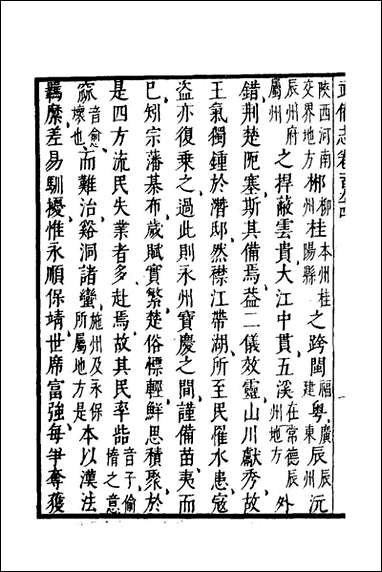 武備志卷百九十四
陝西河南交界地方郴柳州桂本州桂陽縣之跨閩福建粵廣東辰辰州沅
辰州府屬州之捍蔽雲貴大江中貫五溪在常德辰州地方外
錯荆楚阨塞斯其備焉蓋二儀效靈山川獻秀故
王氣獨鍾於潛邸然襟江帶湖所至民罹水患寇
盜亦復乘之過此則永州寶慶之間謹備苗夷而
已矧宗藩棊布歲賦實繁楚俗慓輕鮮思積聚於
是四方流民失業者多赴焉故其民率呰音子偷惰之意
窳音愈壞也而難治谿洞諸蠻施州及永保所屬地方是本以漢法
羈縻差易馴擾惟永順保靖世席富強每爭奪獲